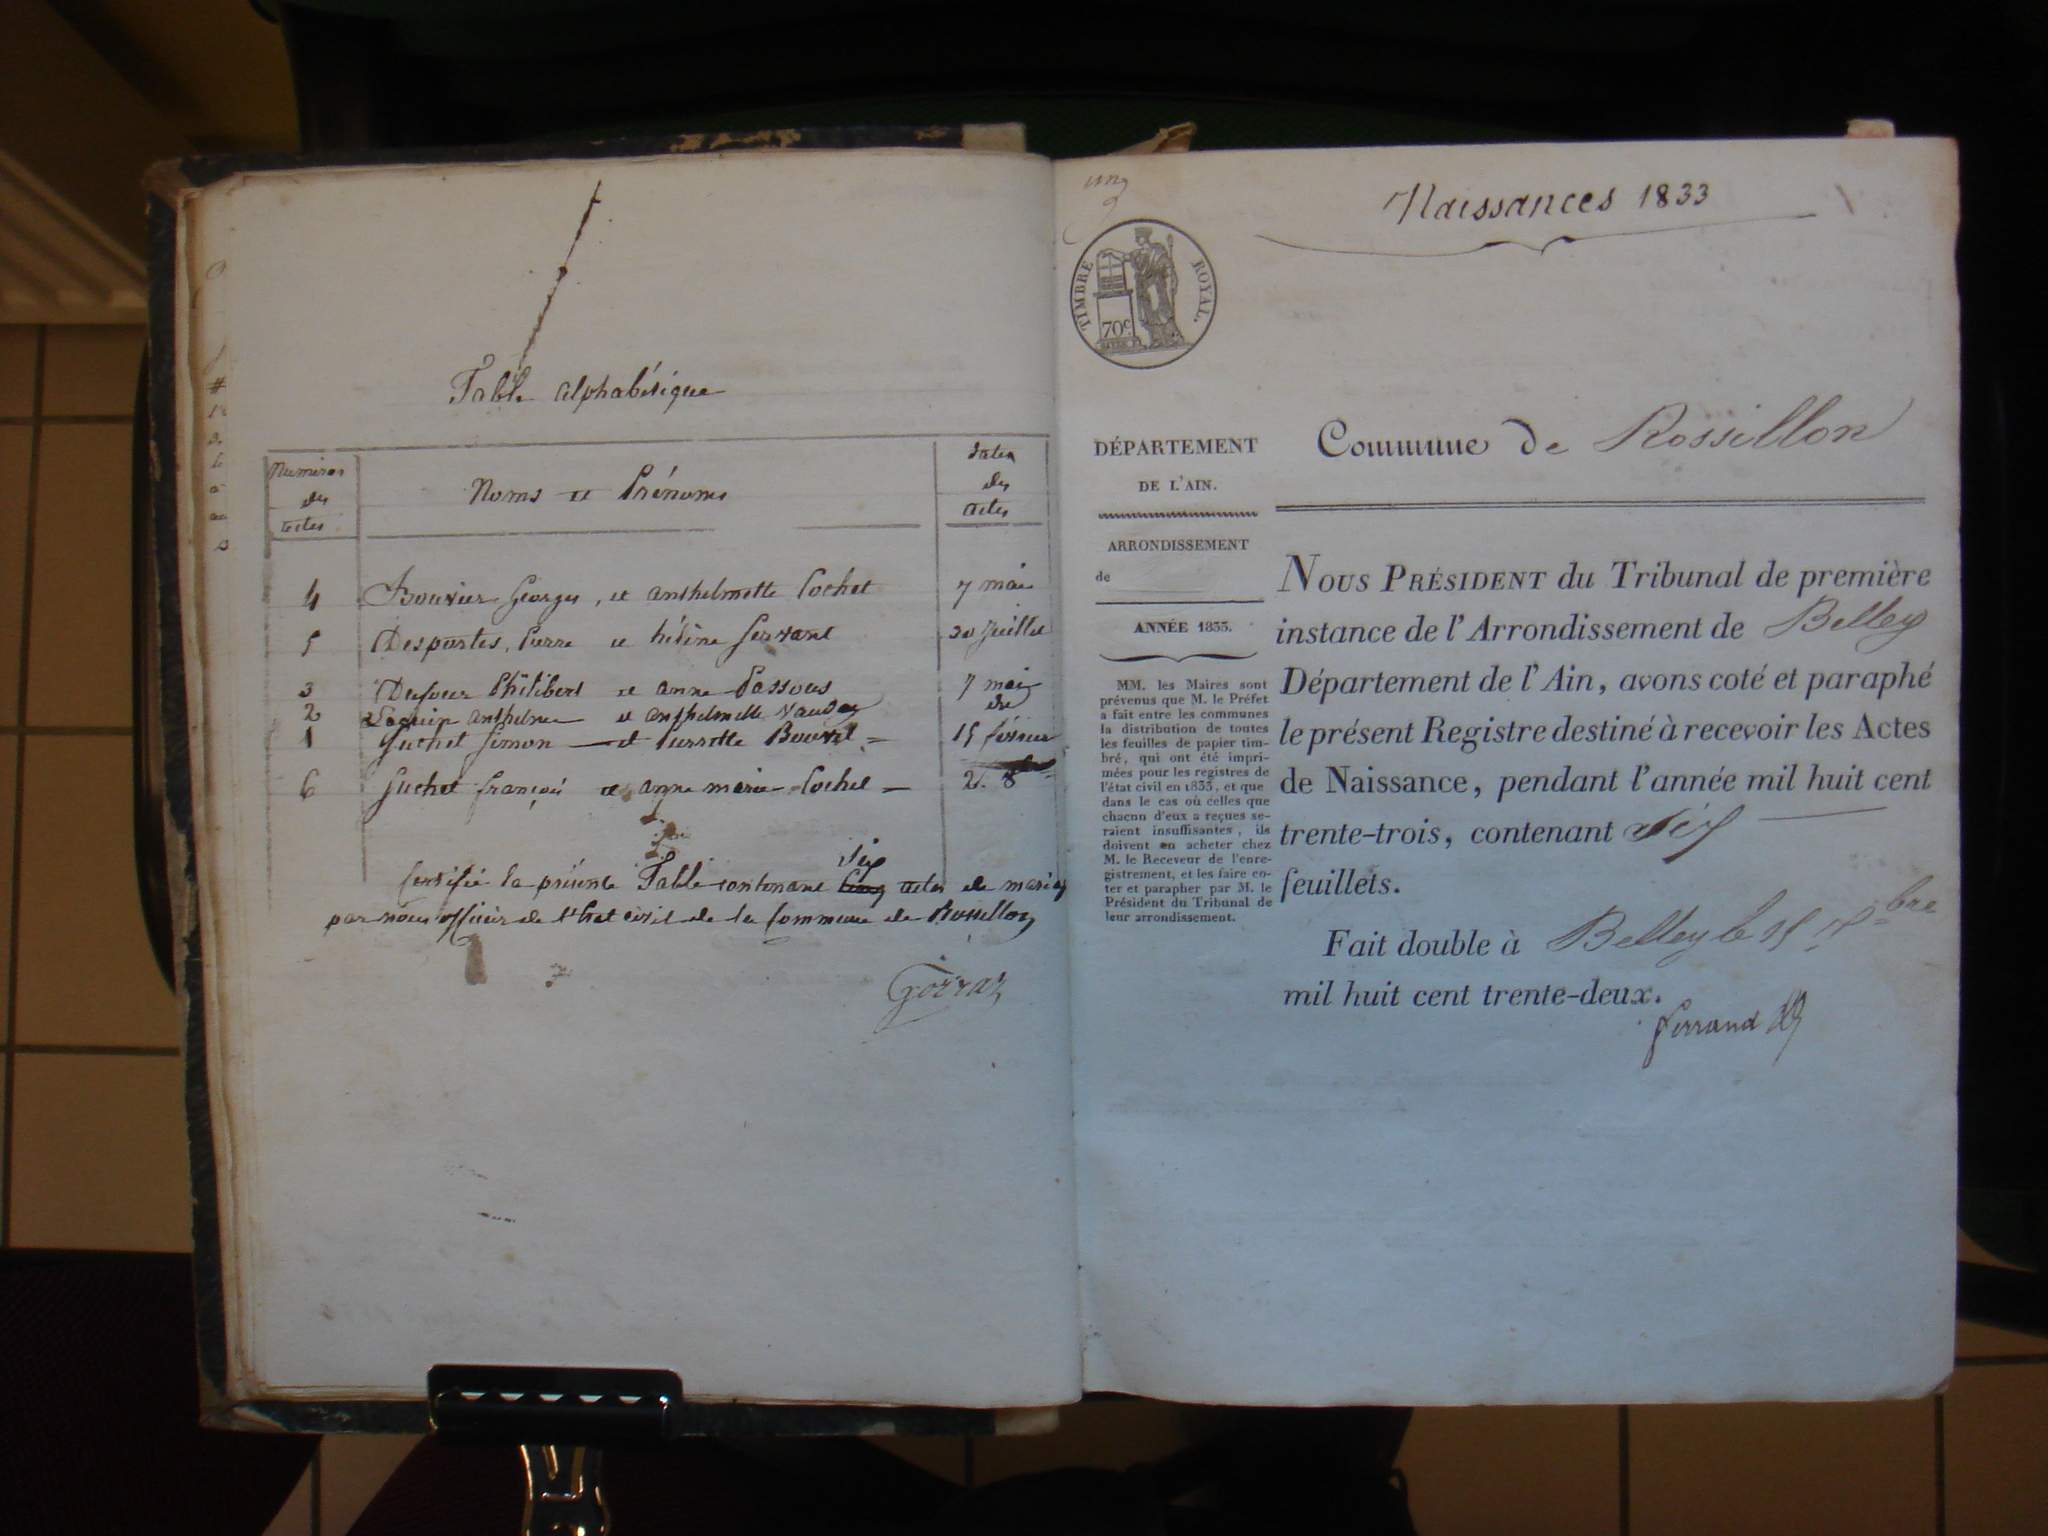 Table alphabétique
Numéros des actes
Noms et Prénoms
Dates des actes
4 Bouvier Georges, et anthelmette Cochet 7 mai
5 Desportes, Pierre et hélène Servant 20 Juillet
3 Dufour Philibert et anne 7 mai
2 anthelme et anthelmette Vaudey du
1 Guchet Simon et Pierrette 15 février
6 Guchet françois et anne marie Cochet 2. 8
Six
Certifié la présente Table contenant cinq actes de mariage
par nous officier de l'Etat civil de la Commune de Rossillon
Gorraz
Naissances 1833
TIMBRE ROYAL.
70c
DÉPARTEMENT
DE L'AIN.
ARRONDISSEMENT
de
ANNÉE 1833.
MM. les Maires sont
prévenus que M. le Préfet
a fait entre les communes
la distribution de toutes
les feuilles de papier tim-
bré, qui ont été impri-
mées pour les registres de
l'état civil en 1833, et que
dans le cas où celles que
chacun d'eux a reçues se-
raient insuffisantes, ils
doivent en acheter chez
M. le Receveur de l'enre-
gistrement, et les faire co-
ter et parapher par M. le
Président du Tribunal de
leur arrondissement.
Commune de Rossillon
NOUS PRÉSIDENT du Tribunal de première
instance de l'Arrondissement de Belley
Département de l'Ain, avons coté et paraphé
le présent Registre destiné à recevoir les Actes
de Naissance, pendant l'année mil huit cent
trente-trois, contenant
feuillets.
Fait double à Belley le 15 bre
mil huit cent trente-deux.
Ferrand